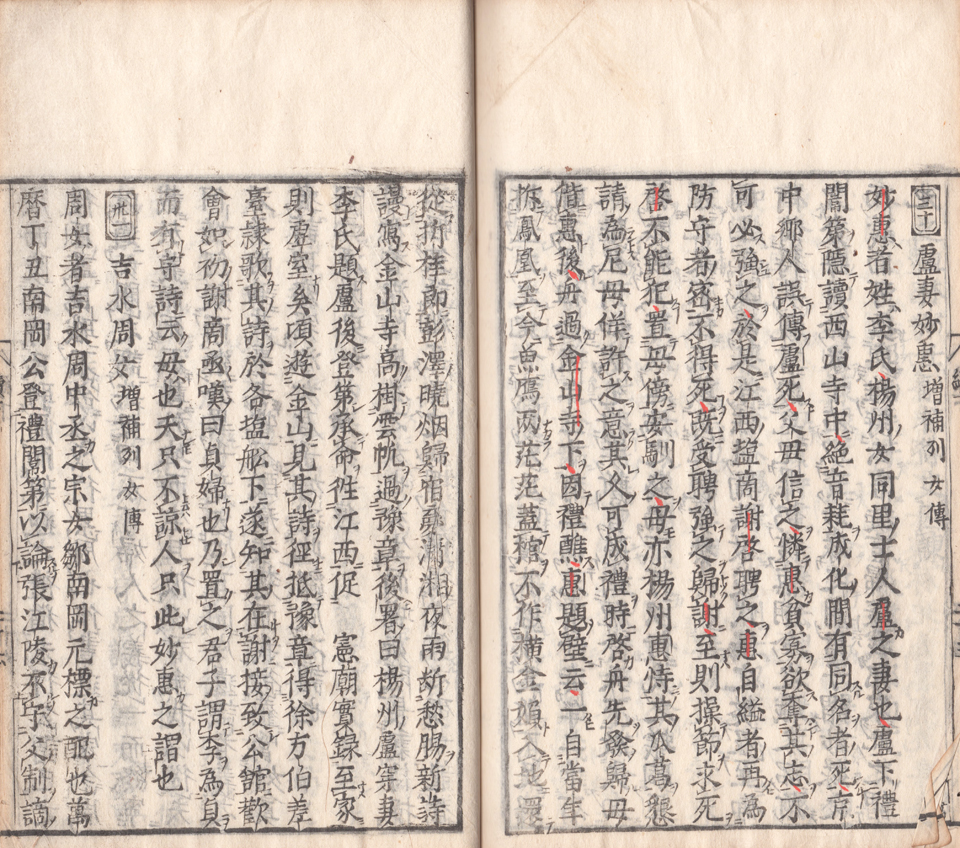 三十 盧妻妙惠 増補列女傳
妙惠者姓李氏楊州女同里士人盧之妻也盧下禮
闈第隱讀西山寺中絕音耗成化間有同名者死京
中鄉人誤傳盧死父母信之憐惠負寡欲奪其志不
可必強之於是江西塩商謝啓聘之惠自縊者再為
防守者密不得死既受聘強之歸謝至則操節求死
啓不能犯置母傍安馴之母亦楊州惠恃其公葛懇
請為尼母佯許之意其久可成禮時啓舟先發歸母
偕惠後舟過金山寺下因禮醮惠題壁云一自當年
拆鳳凰至今魚鴈兩茫茫蓋棺不作橫金婦入地還
從折桂郎彭澤曉烟歸宿夢瀟湘夜雨断愁腸新詩
謾寫金山寺高掛雲帆過豫章後署曰楊州盧穿妻
李氏題盧後登第承命徃江西促 憲廟實錄至家
則虛室矣頃遊金山見其詩徑抵豫章得徐方伯差
臺隷歌其詩於各塩舩下遂知其在謝接致公館歡
會如初謝商亟嘆曰貞婦也乃置之君子謂李為貞
而有守詩云母也天只不諒人只此妙惠之謂也
卅一 吉水周女 増補列女傳
周女者吉水周中丞之宗女鄒南岡元標之配也萬
曆丁丑南岡公登禮闈第以論張江陵不守父制謫